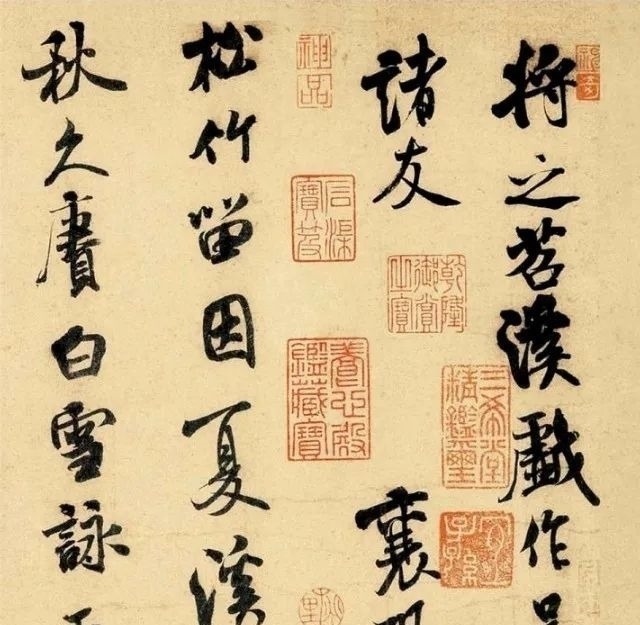 將之苕溪戲作
諸友
襄
松竹留因夏溪
秋久賡白雪詠
神品
石渠寶笈
乾隆御賞之寶
養心殿鑑藏寶
三希堂精鑑璽
宜子孫